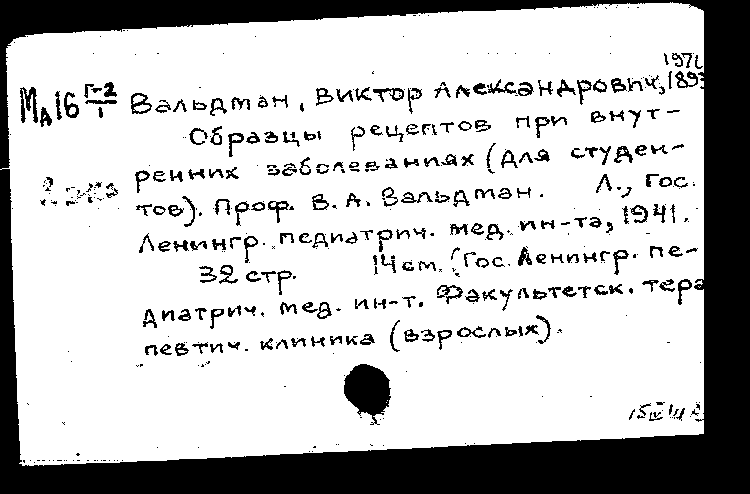 Ма16 Г-2/1 Вальдман, Виктор Александрович, 1893
Образцы рецептов при внут-
ренних заболеваниях (для студен-
тов). Проф. В. А. Вальдман. Л., Гос.
Ленингр. педиатрич. мед. ин-та, 1941.
32 стр. 14 см. (Гос. Ленингр. пе-
диатрич. мед. ин-т. Факультетск. тера
певтич. клиника (взрослых).